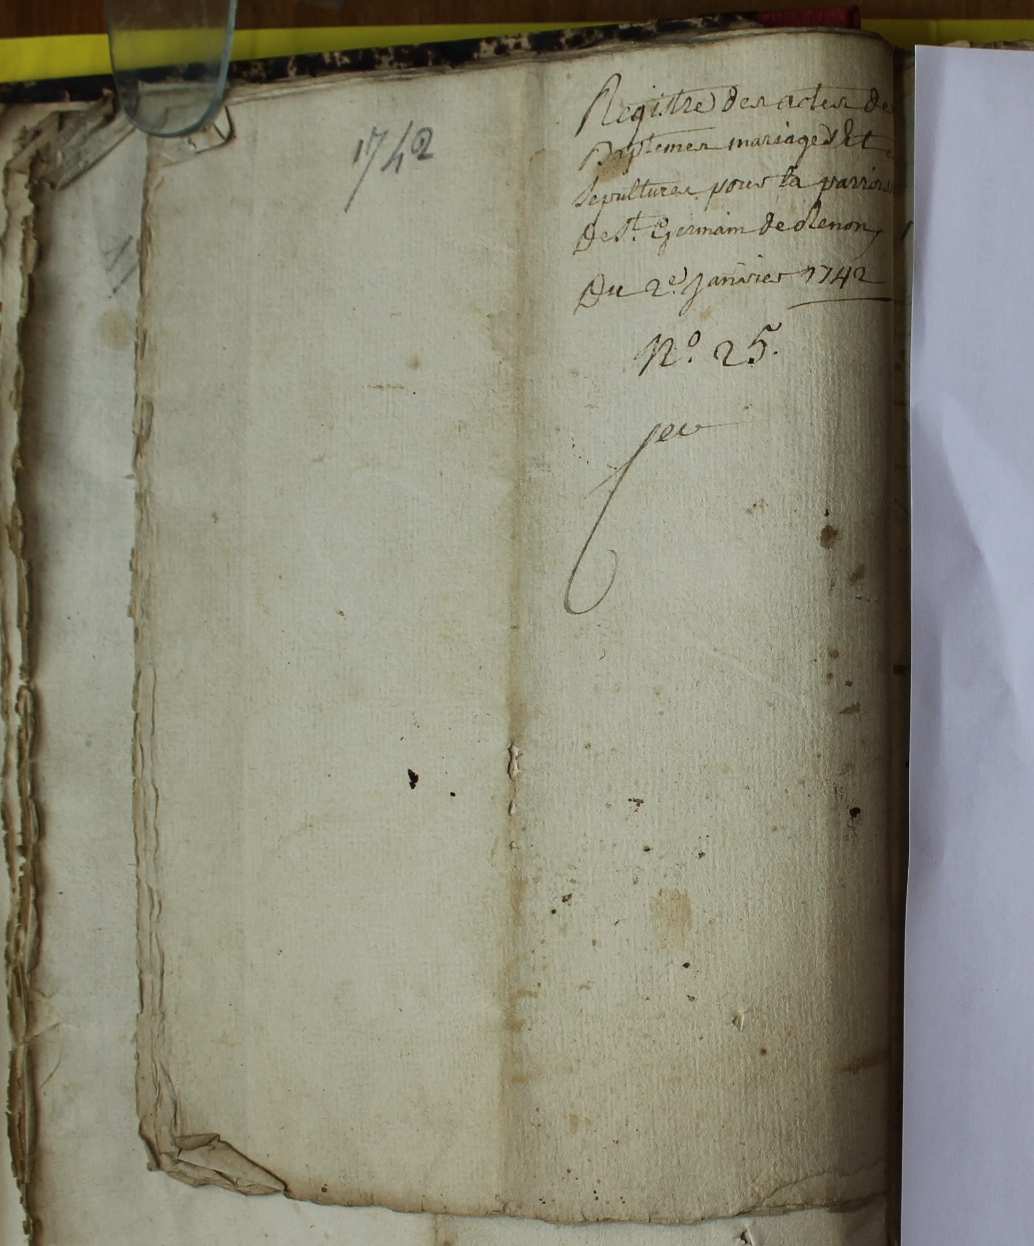 1742
Registre des actes de
Baptemes mariages Et
Sepultures pour la parrois
De St. Germain de Renon,
Du 2e. Janvier 1742
No. 25.